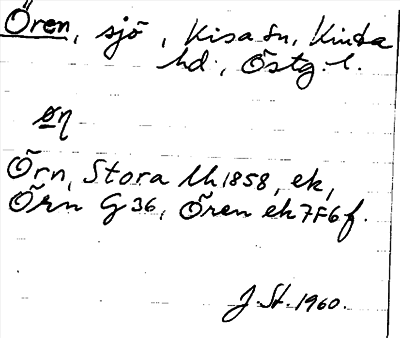 Ören, sjö, Kisa sn, Kinda
hd., Östg. l.
øη
Örn, Stora lh 1858, ek,
Örn G 36, Ören ek 7F6f.
J. St. 1960.